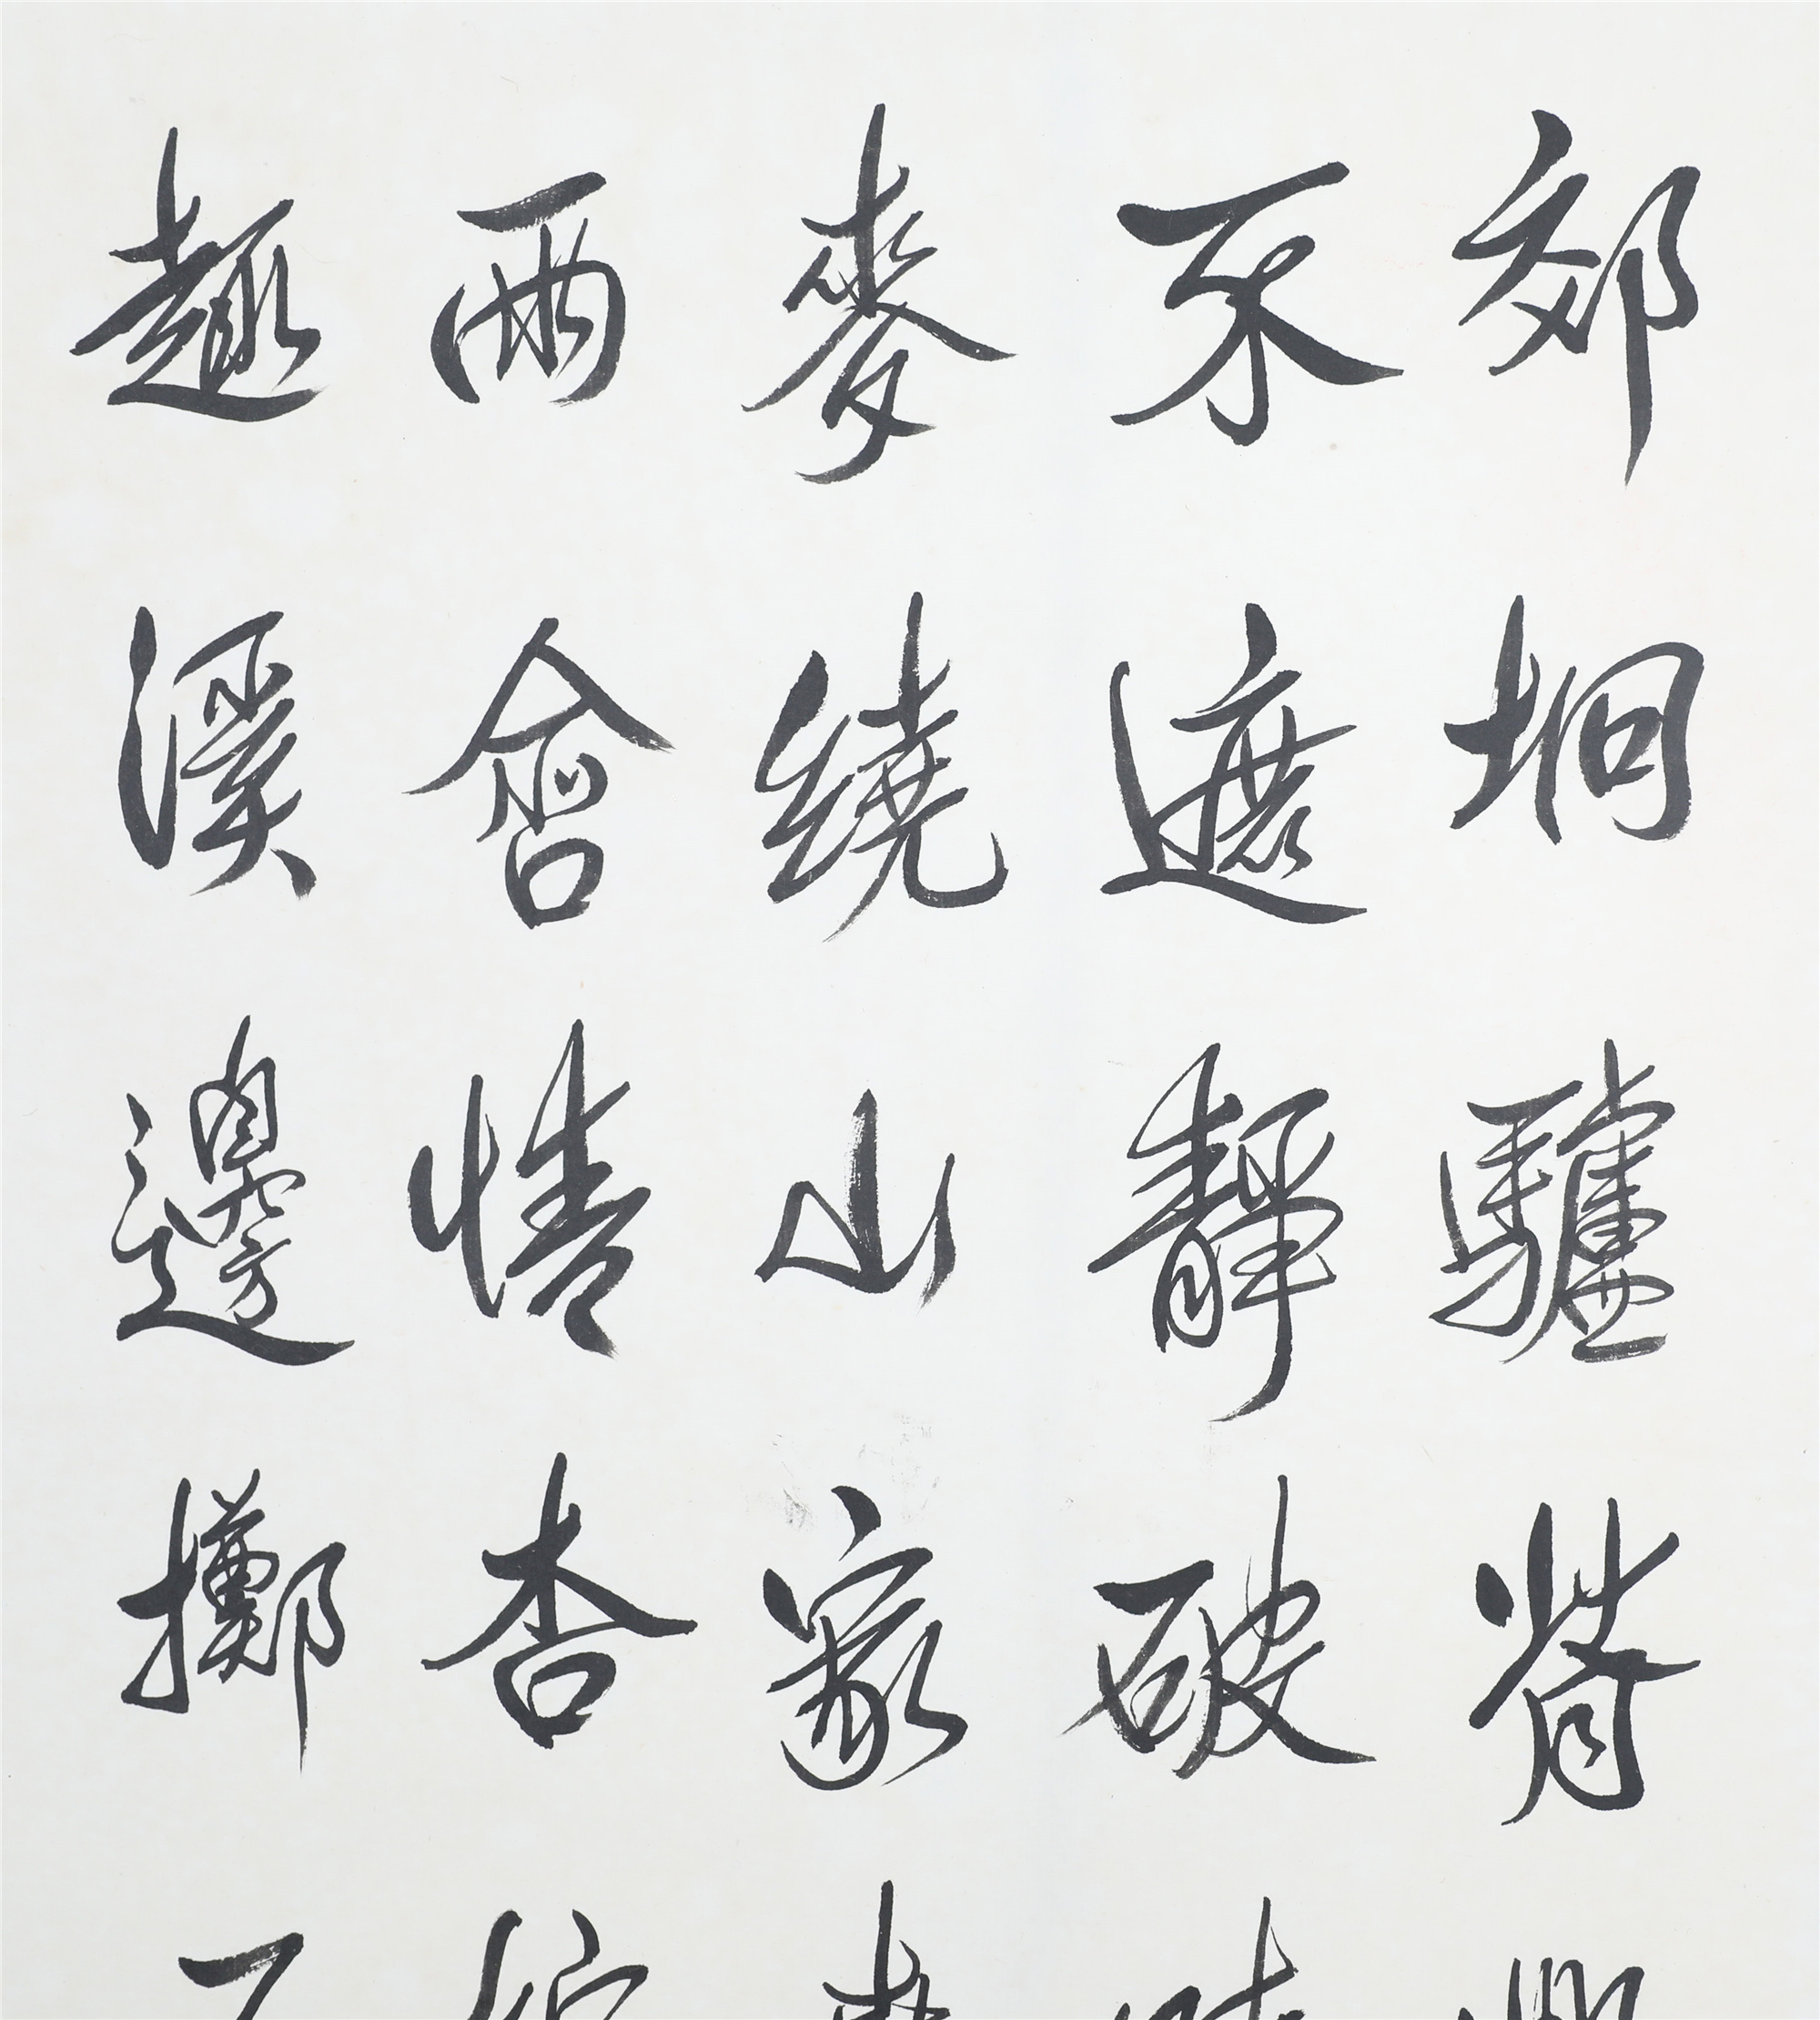 郊坰驢背
不遮靜破
麥繞山家
雨含情杏
趣溪邊擲